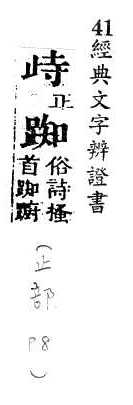 41經典文字辨證書
峙正
踟俗詩搔
首踟躕
(止部 P8)